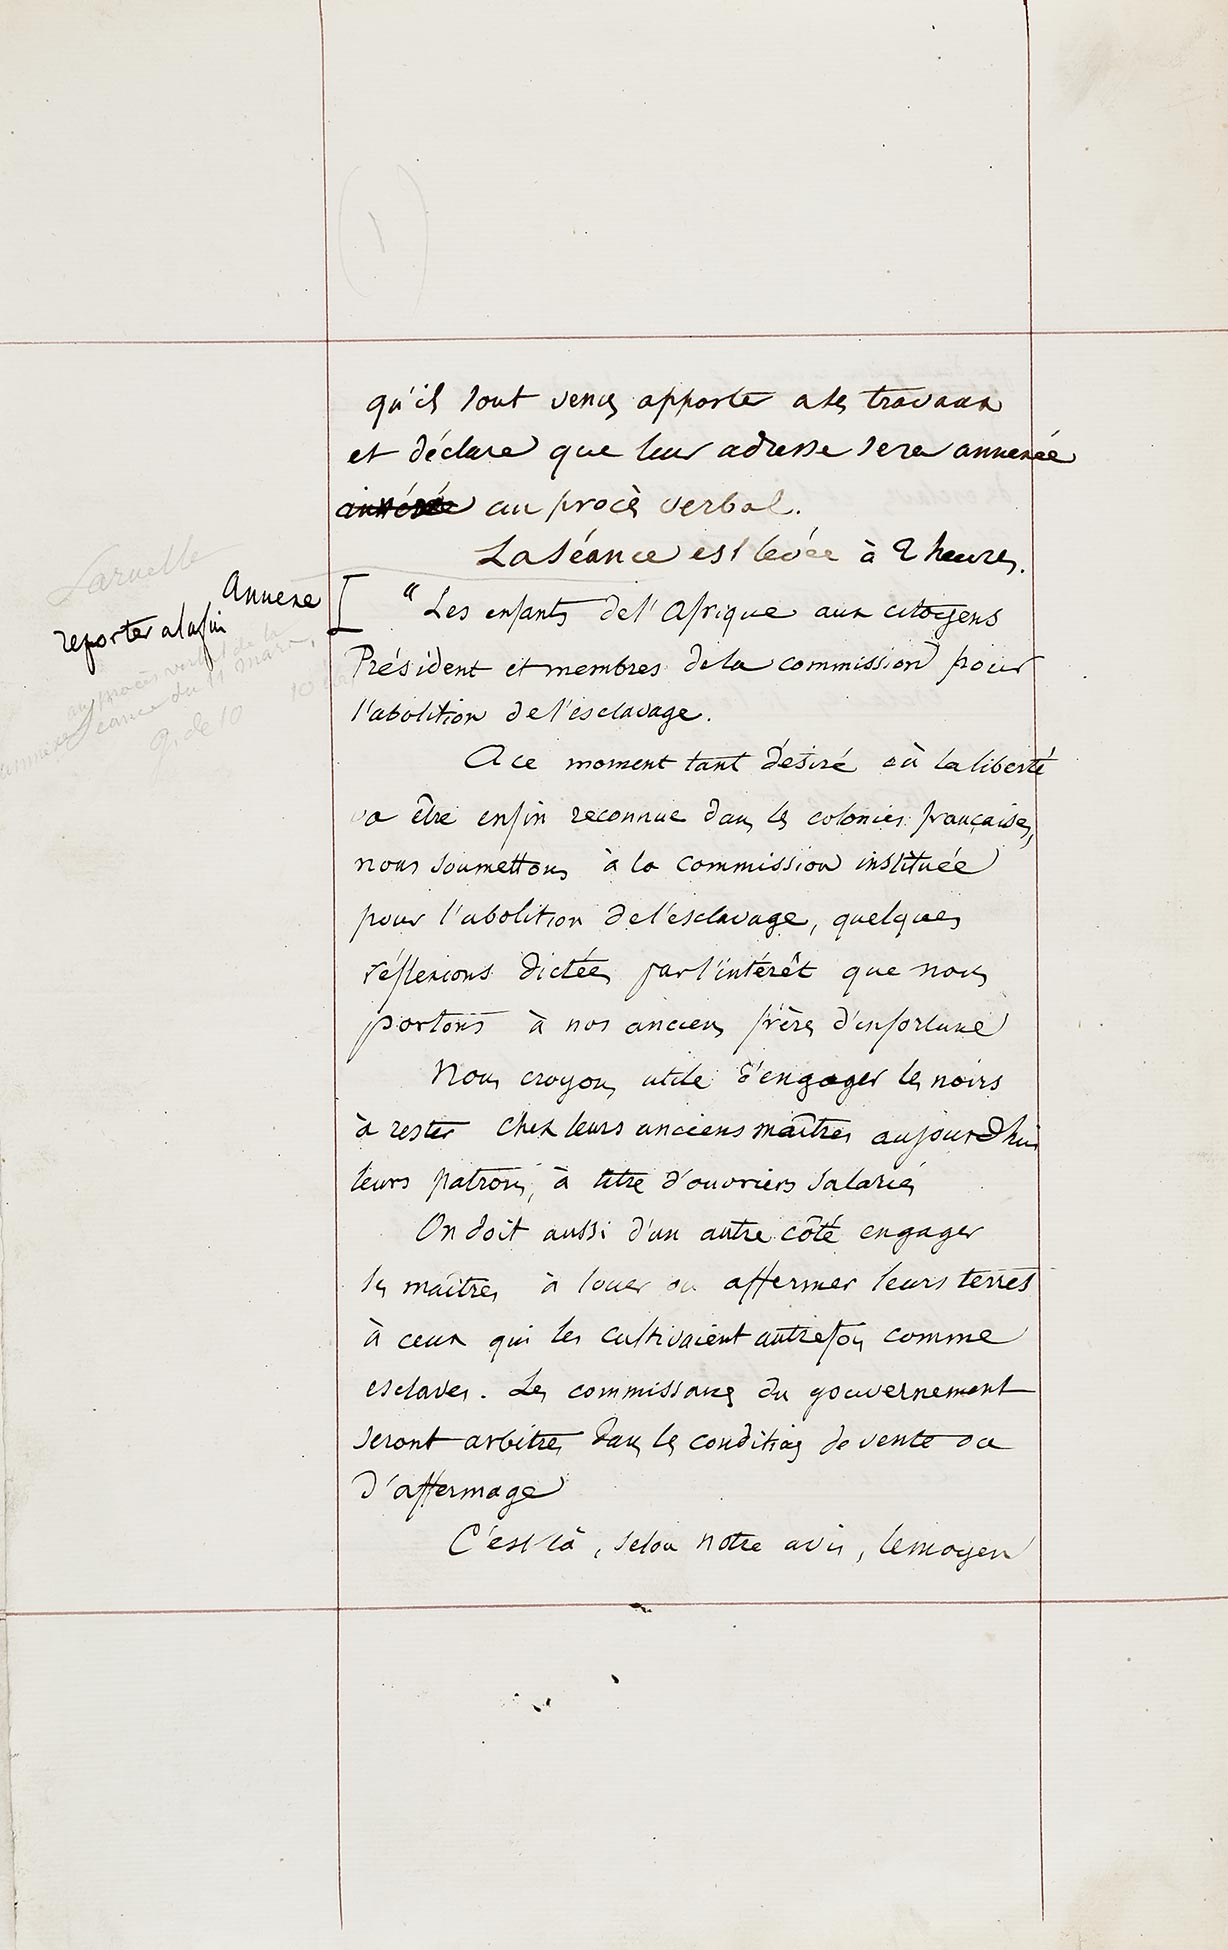 (1)
qu'ils sont venus apporter a ses travaux
et déclare que leur adresse sera annexée
au procès verbal.
La séance est levée à 2 heures.
Laruelle
Annexe
reporter a la fin
annexe au procès verbal de la
Séance du 11 mars,
g. de 10
"Les enfants de l'Afrique aux citoyens
Président et membres de la commission pour
l'abolition de l'esclavage.
A ce moment tant désiré où la liberté
va être enfin reconnue dans les colonies françaises,
nous soumettons à la commission instituée
pour l'abolition de l'esclavage, quelques
réflexions dictées par l'intérêt que nous
portons à nos anciens frères d'infortune
Nous croyons utile d'engager les noirs
à rester chez leurs anciens maîtres aujourd'hui
leurs patrons, à titre d'ouvriers salariés
On doit aussi d'un autre côté engager
les maîtres à louer ou affermer leurs terres
à ceux qui les cultivaient autrefois comme
esclaves. Les commissaires du gouvernement
seront arbitres dans les conditions de vente ou
d'affermage
C'est là, selon notre avis, le moyen